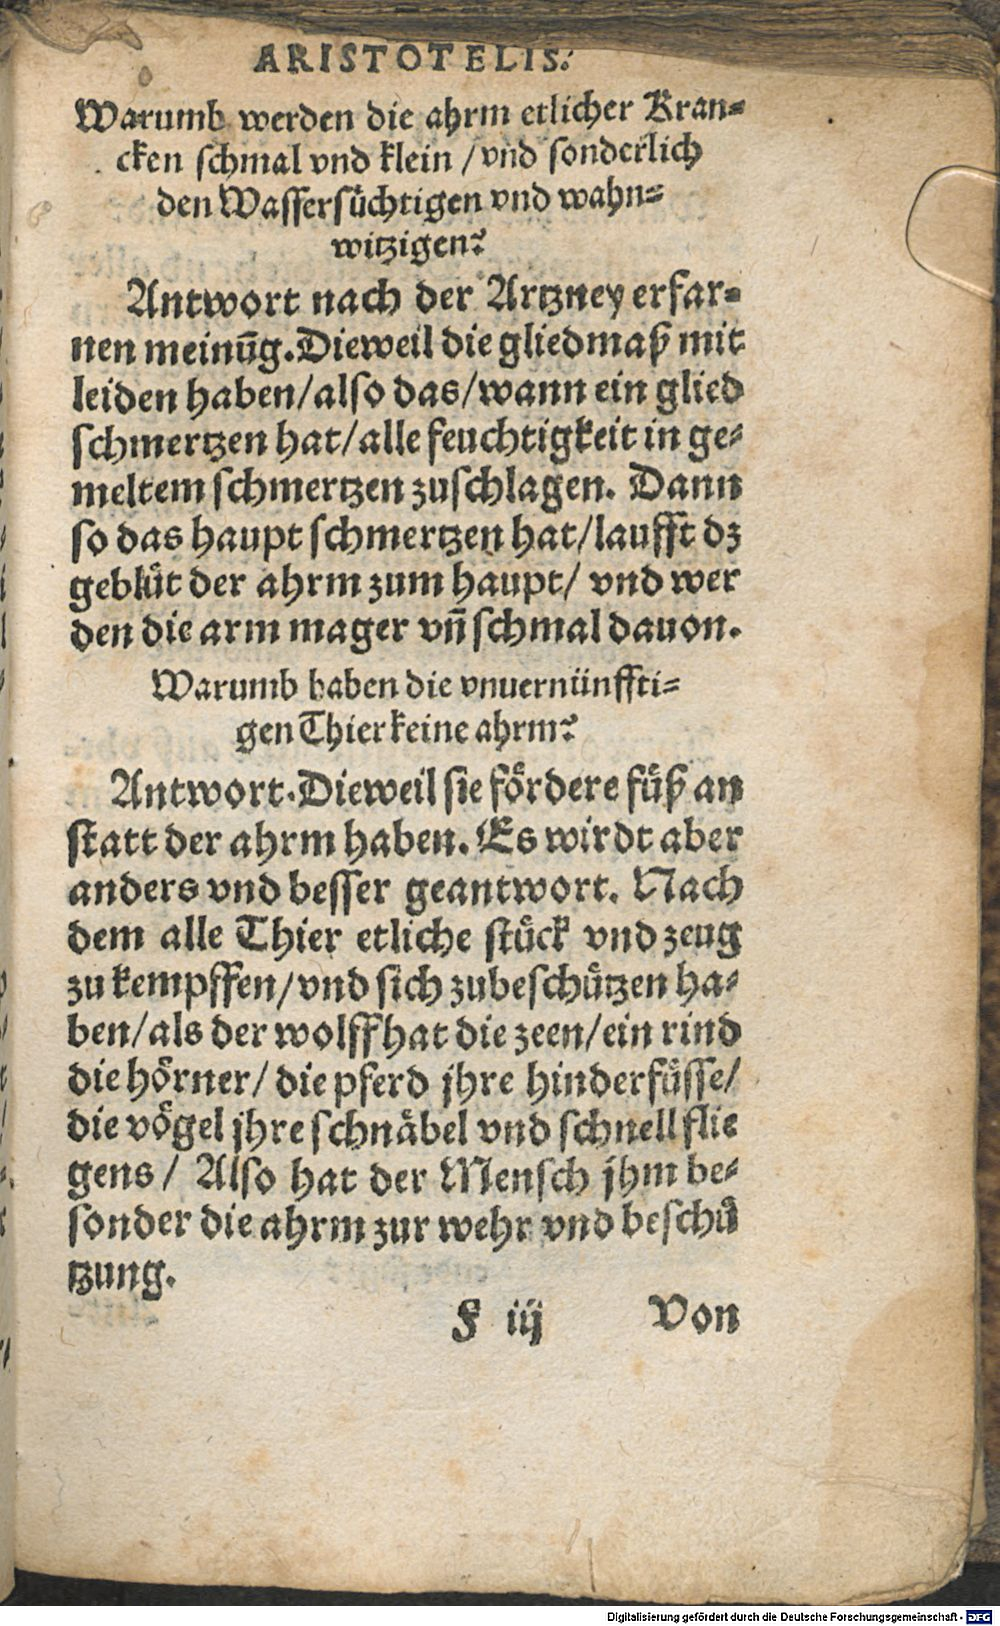 ARISTOTELIS.
Warumb werden die ahrm etlicher Kran⸗
cken schmal vnd klein /vnd sonderlich
den Wassersüchtigen vnd wahn⸗
witzigen?
Antwort nach der Artzney erfar⸗
nen meinūg. Dieweil die gliedmaß mit
leiden haben/also das/wann ein glied
schmertzen hat/alle feuchtigkeit in ge⸗
meltem schmertzen zuschlagen. Dann
so das haupt schmertzen hat/laufft dz
geblüt der ahrm zum haupt/ vnd wer
den die arm mager vn̄ schmal dauon.
Warumb haben die vnuernünffti⸗
gen Thier keine ahrm?
Antwort. Dieweil sie fördere füß an
statt der ahrm haben. Es wirdt aber
anders vnd besser geantwort. Nach
dem alle Thier etliche stück vnd zeug
zu kempffen/vnd sich zubeschützen ha⸗
ben/als der wolff hat die zeen/ein rind
die hörner/ die pferd jhre hinderfüsse/
die vögel jhre schnäbel vnd schnell flie
gens/ Also hat der Mensch jhm be⸗
sonder die ahrm zur wehr vnd beschü
tzung.
F iij Von
Digitalisierung gefördert durch die Deutsche Forschungsgemeinschaft - DFG